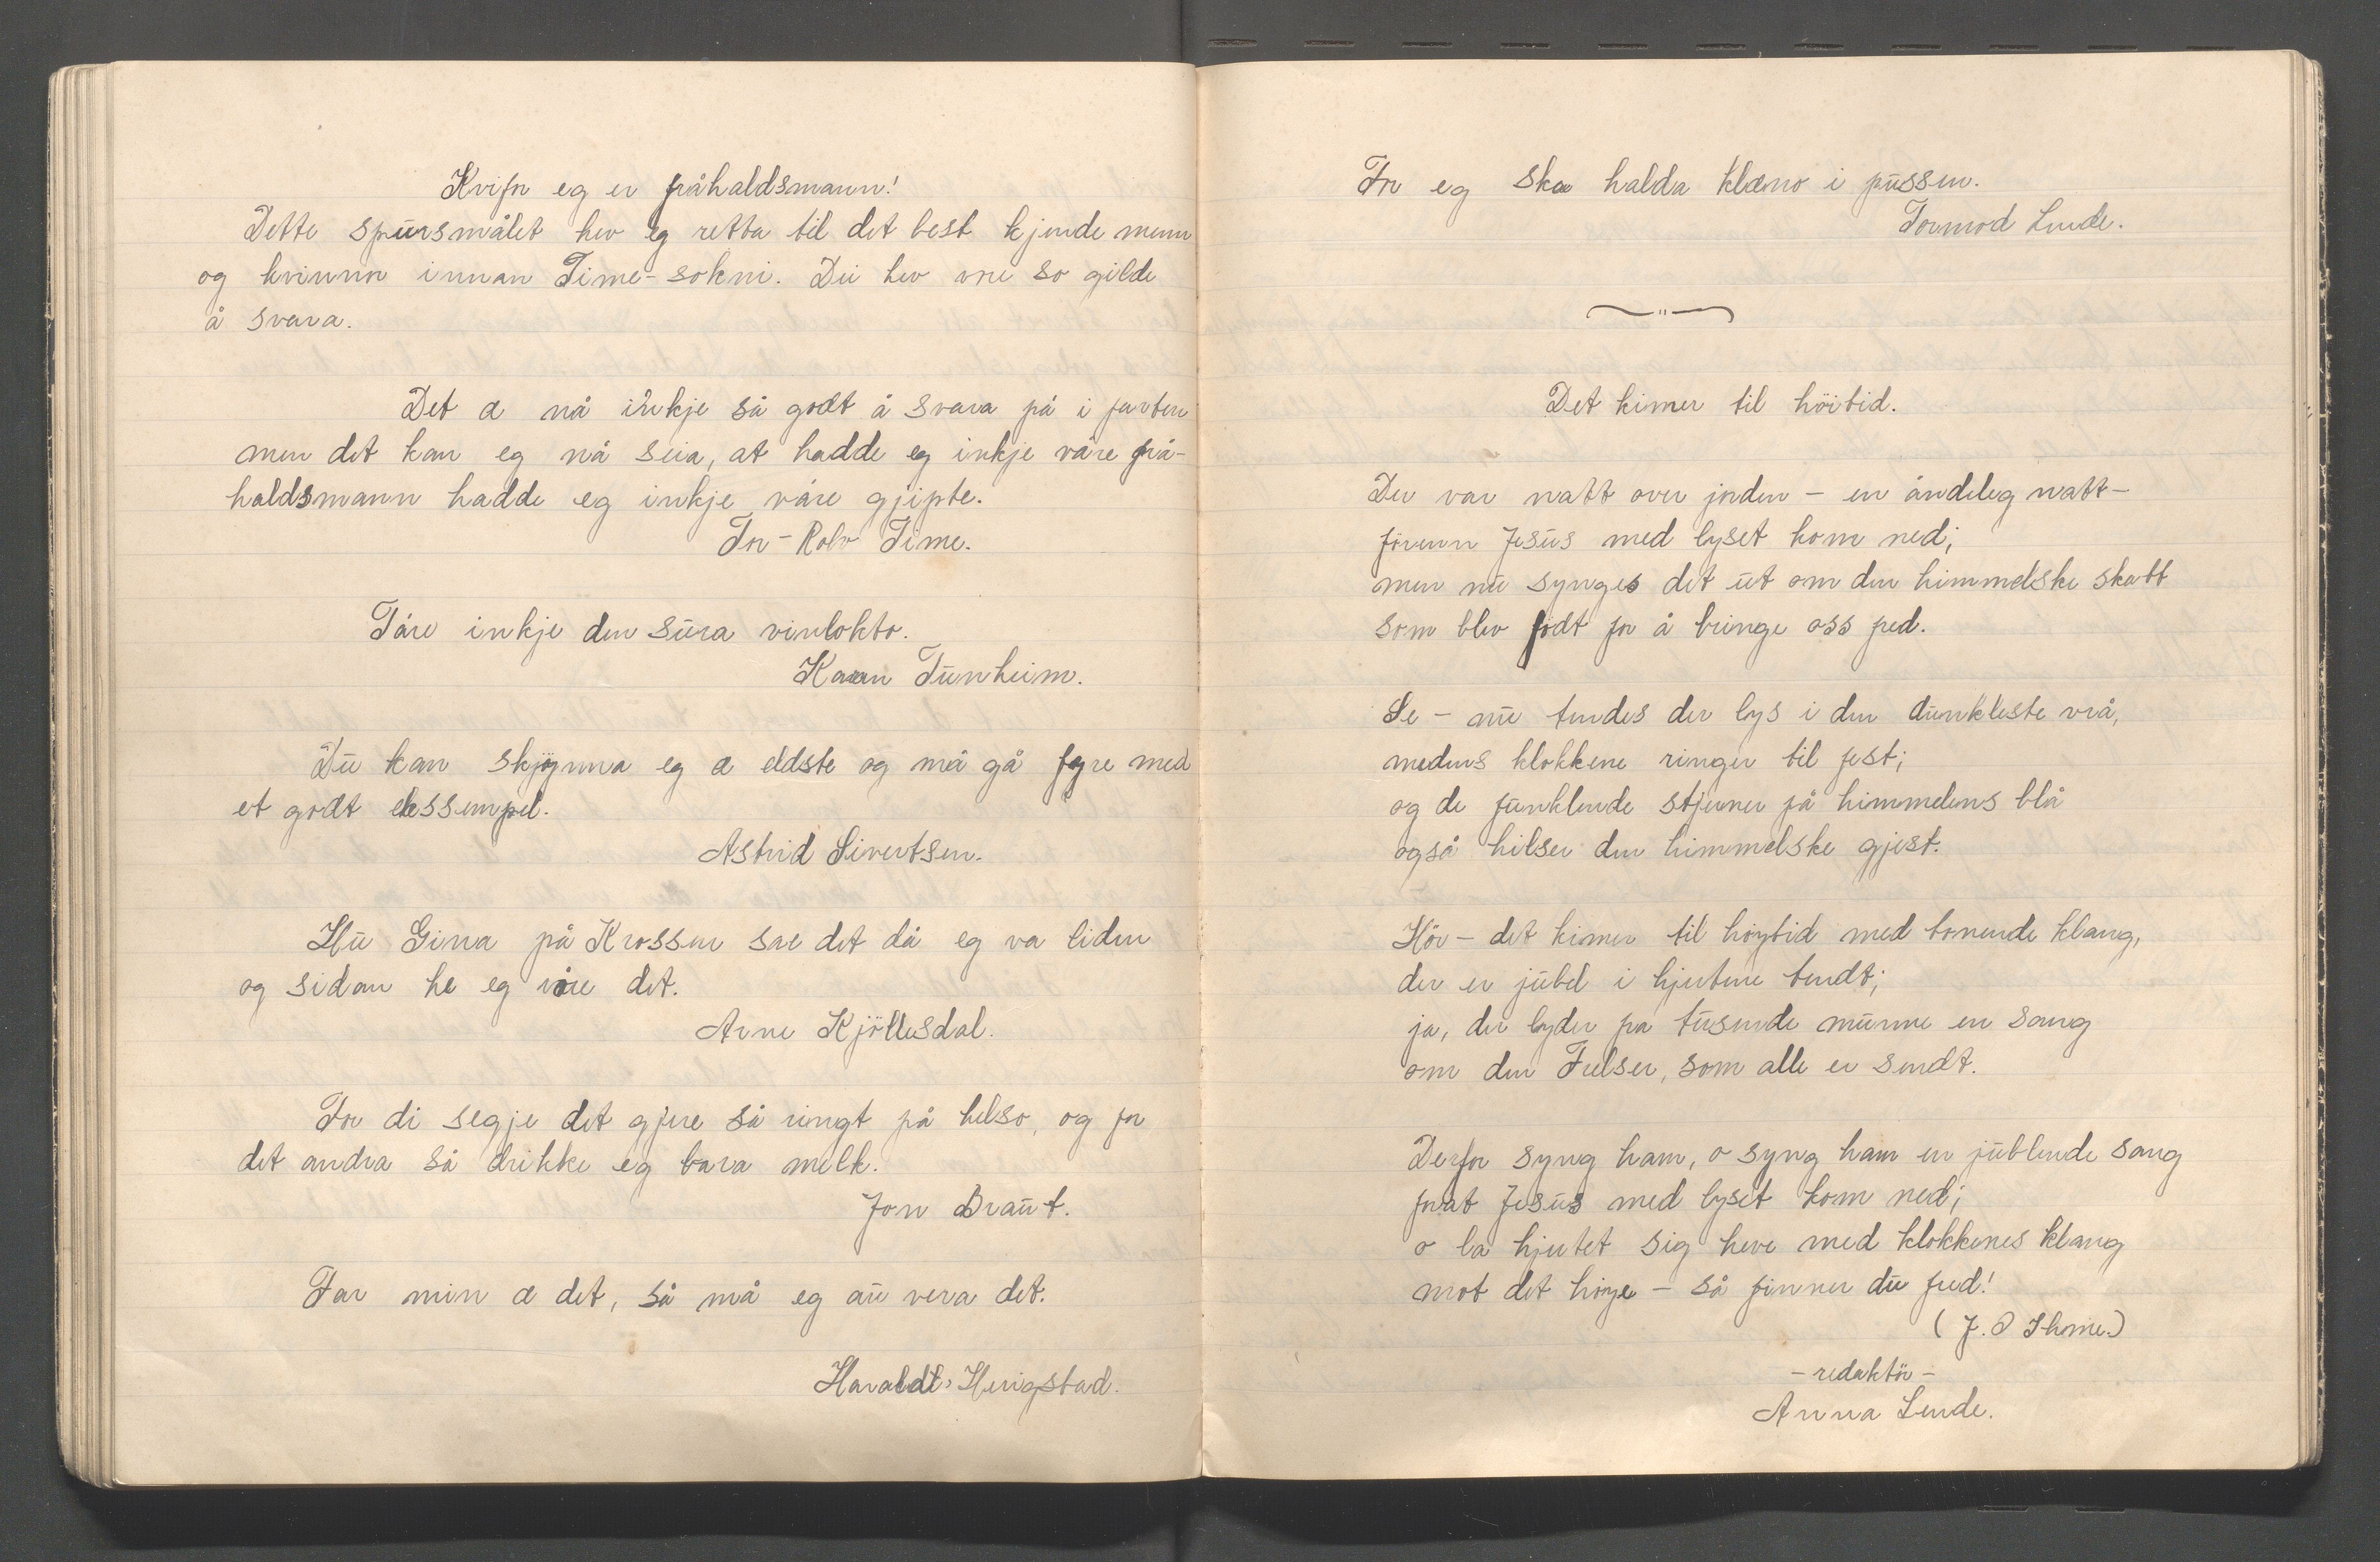 Kvifor eg er fråhaldsmann!
Dette spursmålet hev eg retta til det best kjende menn
og kvinnor innan Time-sokni. Dei hev vore so gilde
å svara.
Det æ nå inkje så godt å svara på i farten
men det kan eg nå seia, at hadde eg inkje våre frå-
haldsmann hadde eg inkje våre gjipte.
Tor-Rolv Time.
Tåre inkje den sura vinlokto.
Karen Tunheim.
Du kan skjønna eg æ eldste og må gå fyre med
et godt ekssempel.
Astrid Sivertsen.
Hu Gina på Krossen sae det då eg va liden
og sidan he eg våre det.
Arne Kjöllesdal.
For di segje det gjere så ringt på helso, og for
det andra så drikke eg bara melk.
Jon Braut.
Far min æ det, så må eg au vera det.
Harald Herigstad.
For eg ska halda klæno i pussen.
Tormod Lende.
Det kimer til höitid.
Der var natt over jorden - en åndeleg natt-
förenn Jesus med lyset kom ned;
men nu synges det ut om den himmelske skatt
som blev födt for å bringe oss fred.
Se - nu tendes der lys i den dunkleste vrå,
medens klokkene ringer til fest;
og de funklende stjerner på himmelens blå
også hilser den himmelske gjest.
Hör - det kimer til höytid med tonende klang,
der er jubel i hjertene tendt;
ja, der lyder fra tusende munne en sang
om den Frelser, som alle er sendt.
Derfor syng ham, o syng ham en jublende sang
forat Jesus med lyset kom ned;
o la hjertet sig heve med klokkenes klang
mot det höye - så finner du fred!
(J. O Thorne.)
- redaktör -
Anna Lende.